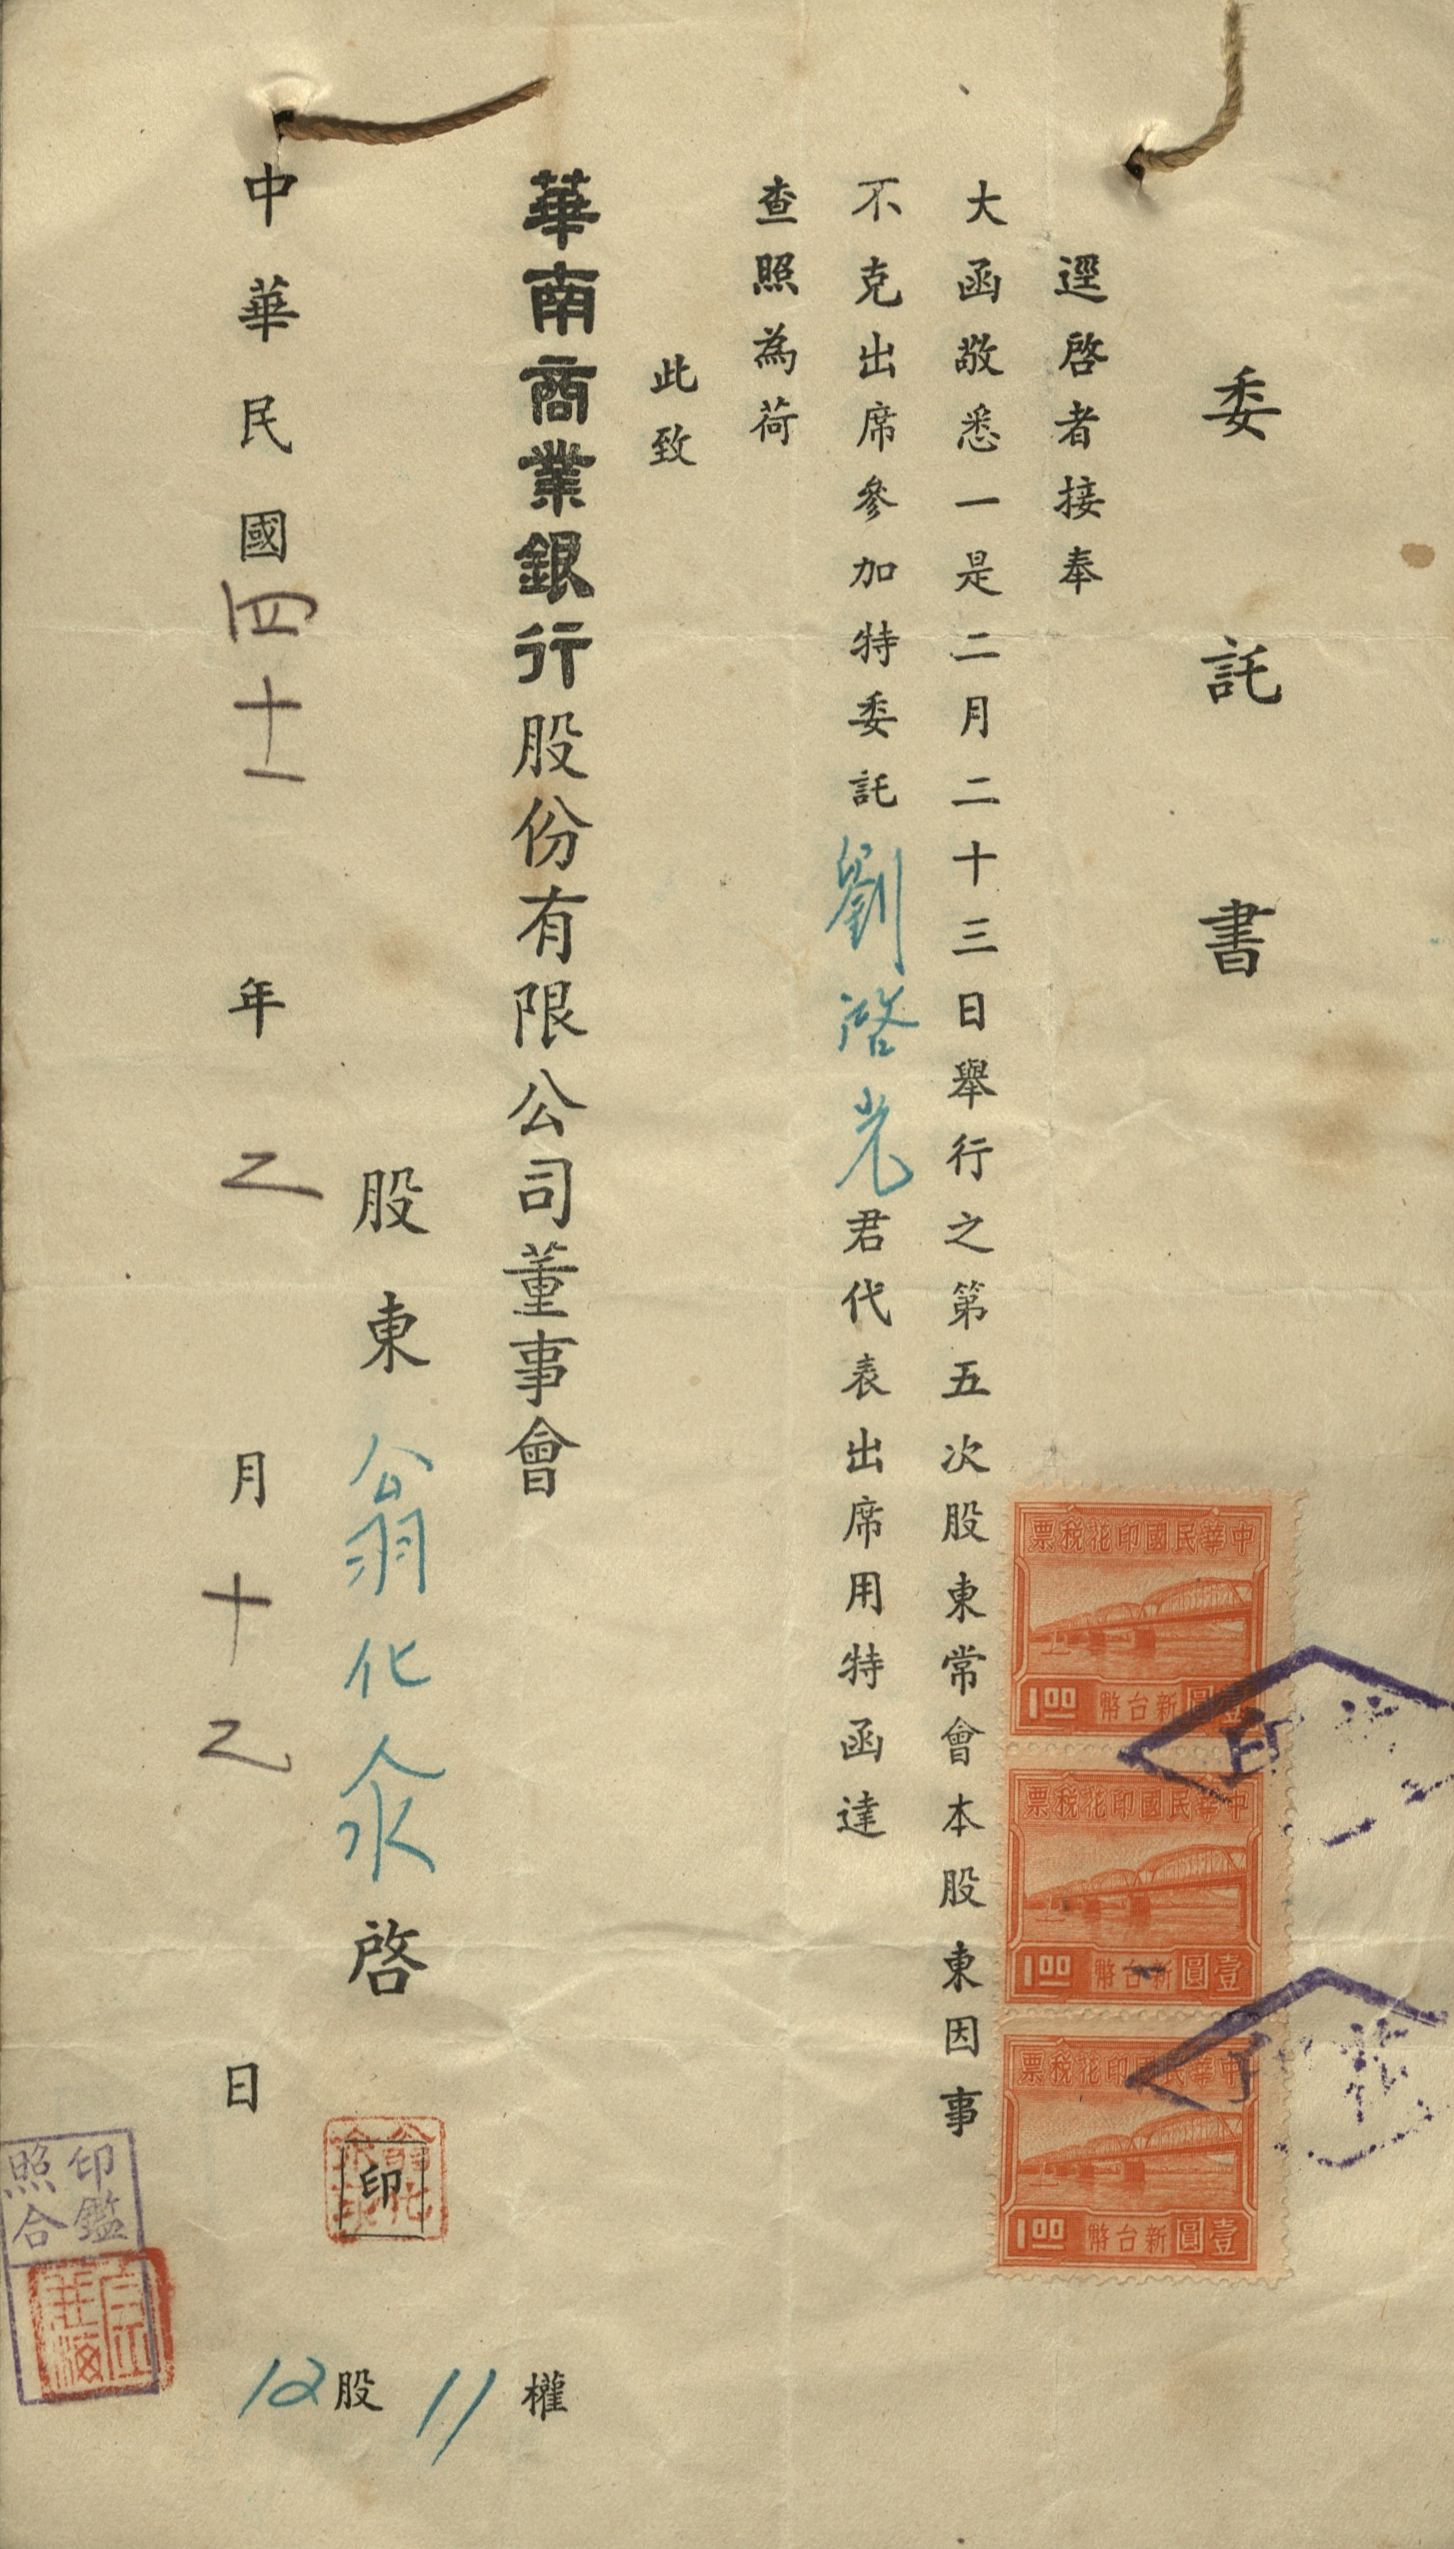 委託書
逕啓者接奉
大函敬悉一是二月二十三日舉行之第五次股東常會本股東因事
不克出席參加特委託劉啓光君代表出席用特函達
查照為荷
此致
華南商業銀行股份有限公司董事會
股東翁化汆啓
印
中華民國四十一年乙月十乙日
12股11權
票稅花印國民華中
1.00 幣台新圓壹
票稅花印國民華中
1.00 幣台新圓壹
票稅花印國民華中
1.00 幣台新圓壹
印鑑
照合